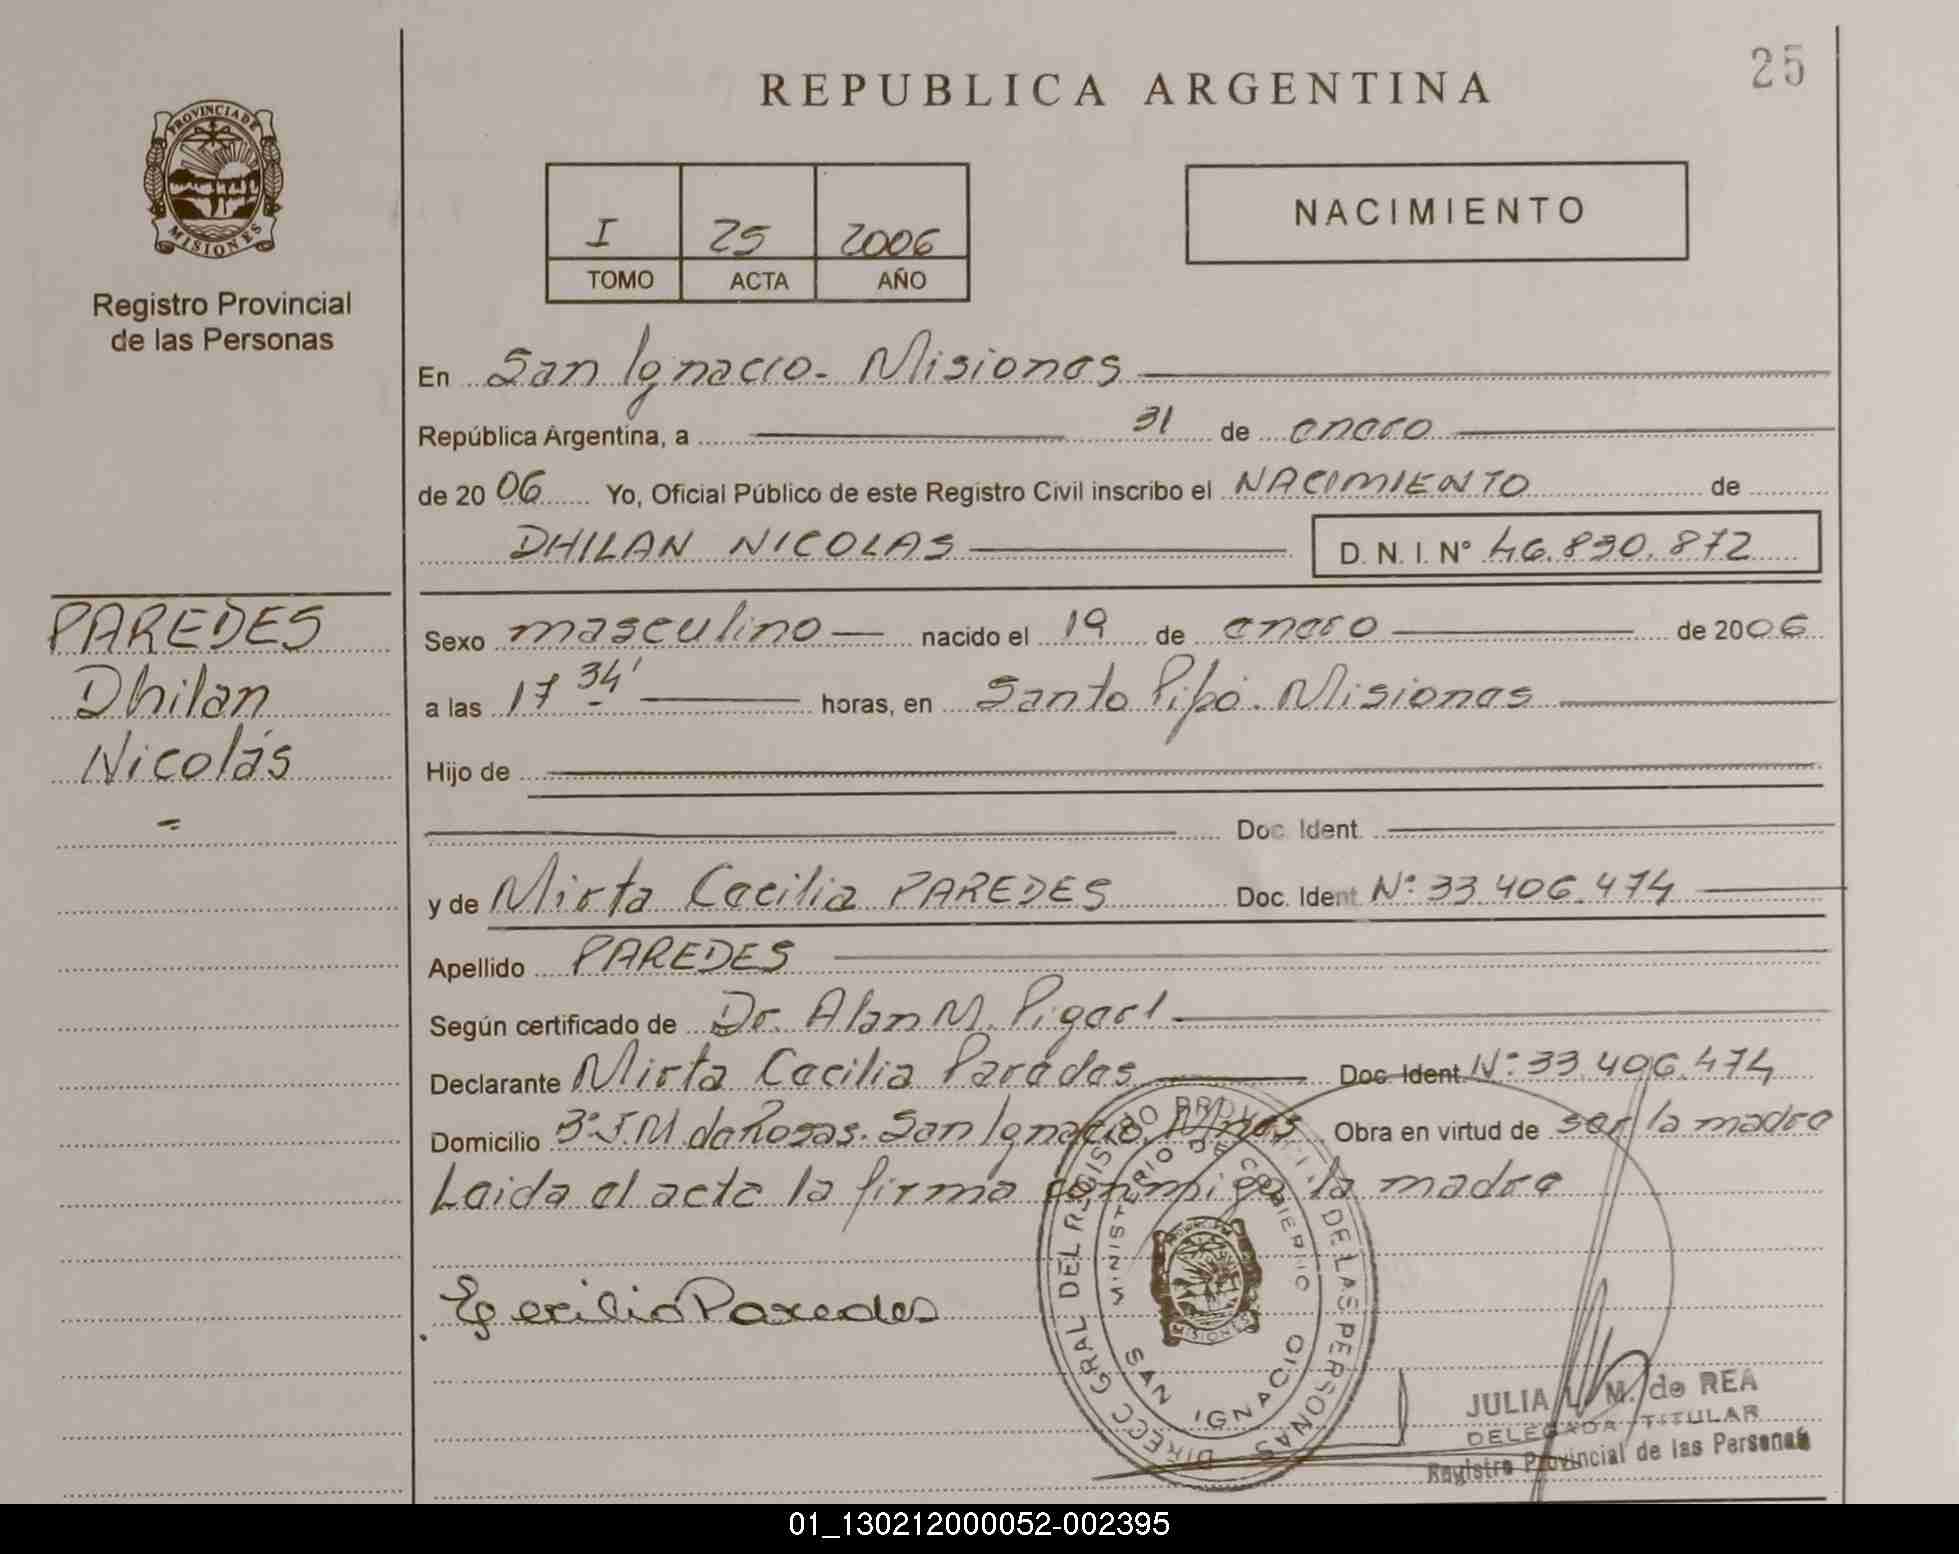 25
REPUBLICA ARGENTINA
PROVINCIA DE
MISIONES
Registro Provincial
de las Personas
I 25 2006
TOMO ACTA AÑO
NACIMIENTO
En San Ignacio - Misiones
República Argentina, a 31 de enero
de 20 06 Yo, Oficial Público de este Registro Civil inscribo el NACIMIENTO de
DHILAN NICOLAS D. N. I. N° 46.830.872
PAREDES
Dhilan
Nicolás
Sexo masculino nacido el 19 de enero de 2006
a las 17 34' horas, en Santo Pipó. Misiones
Hijo de
Doc. Ident.
y de Mirta Cecilia PAREDES Doc. Ident. N°: 33.406.474
Apellido PAREDES
Según certificado de Dr. Alan M.
Declarante Mirta Cecilia Paredes Doc. Ident. N°: 33.406.474
Domicilio B° J.M. de Rosas. San Ignacio. Mnes Obra en virtud de ser la madre
Leida el acta la firma conmigo la madre
Paredes
DIRECC GRAL DEL REGISTRO PROVINCIAL DE LAS PERSONAS
MINISTERIO DE GOBIERNO
SAN IGNACIO
MISIONES
JULIA L. M. de REA
DELEGADA TITULAR
Registro Provincial de las Personas
01_130212000052-002395